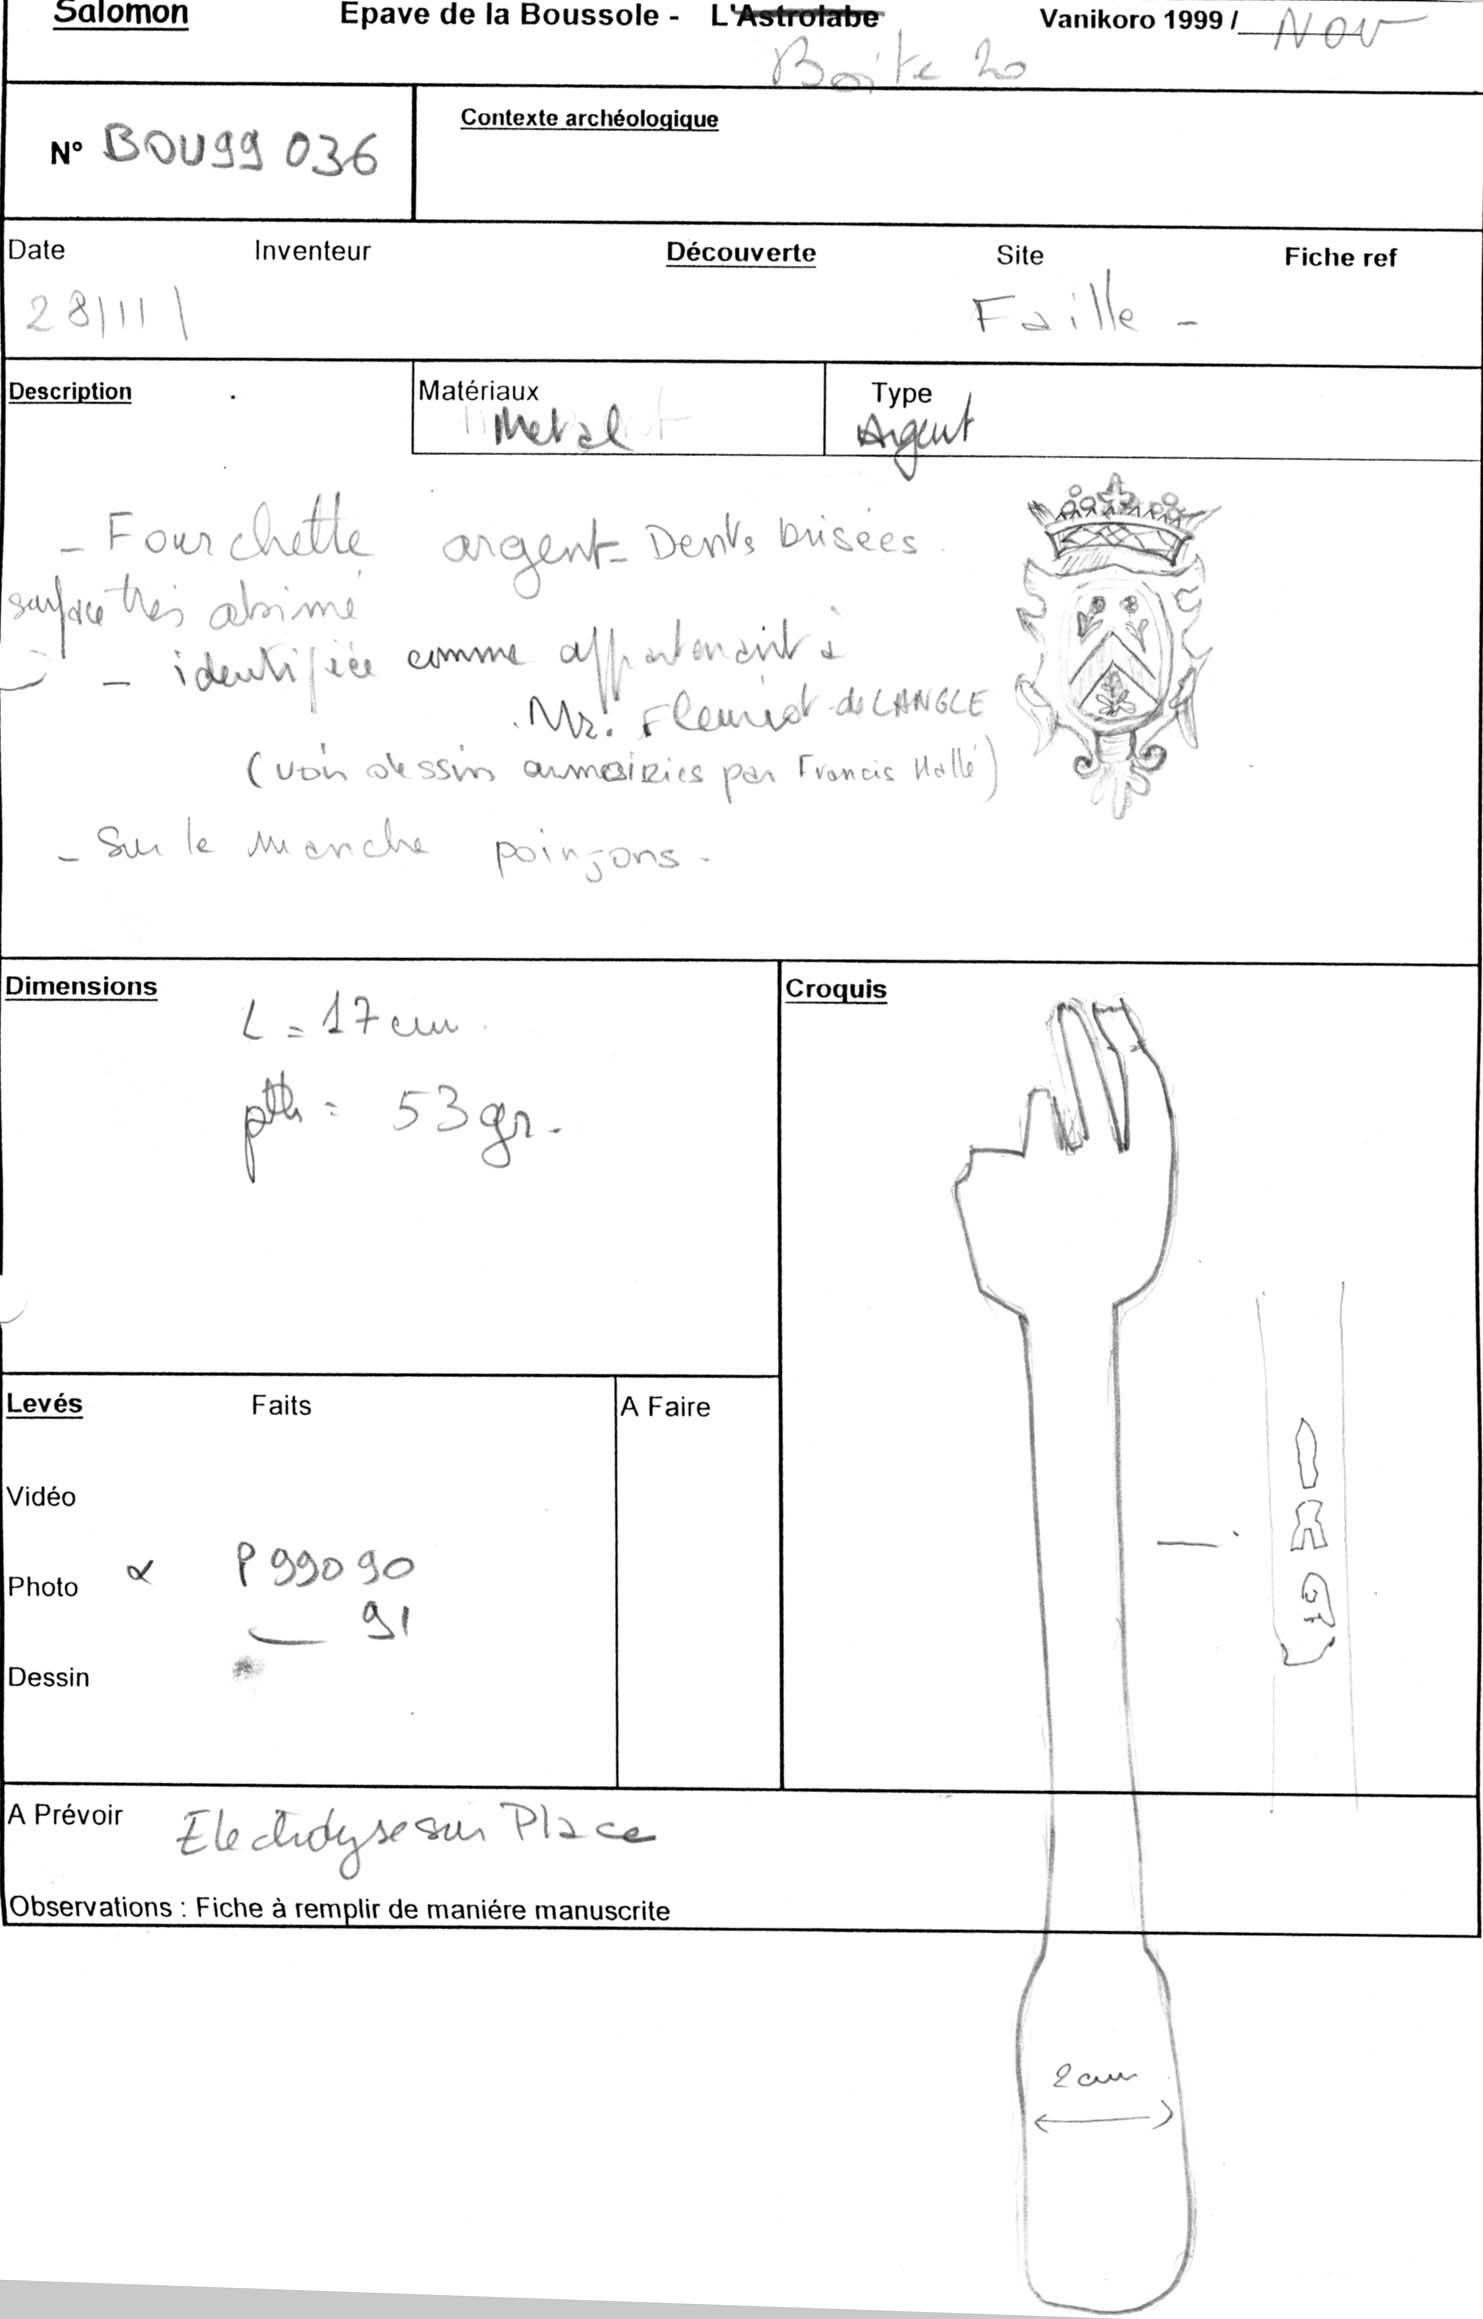 Salomon Epave de la Boussole - L'Astrolabe Vanikoro 1999 / Nov
Boite 20
N° BOU99 036
Contexte archéologique
Date Inventeur Découverte Site Fiche ref
28/11/ Faille -
Description Matériaux Type
Metal Argent
- Fourchette argent - Dents brisées.
surface très abimé
- identifiée comme appartenant à
Mr. Fleuriot de LANGLE
(voir dessin armoiries par Francis Hallé)
- Sur le manche poinçons -
Dimensions
L = 17 cm
pds = 53 gr.
Croquis
Levés Faits A Faire
Vidéo
Photo P 99090
91
Dessin
2 cm
A Prévoir Electrolyse sur Place
Observations : Fiche à remplir de maniére manuscrite